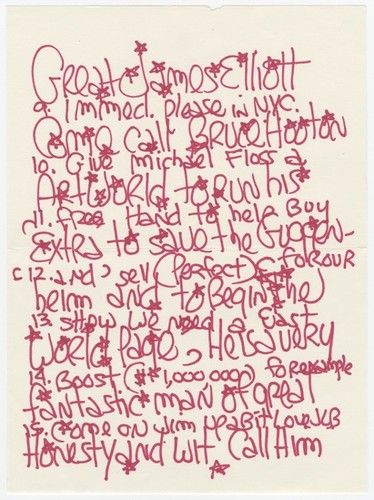 Great James Elliott
9. immed. please in NYC.
Come call Bruce Hooton
10. Give michael Floss a
Art World to run his
11. free Hand to help Buy
Extra to save the Guggen-
12. and sell (Perfect) for our
heim and to Begin the
13. show we need a East
World Page, He is very
14. Boost 1,000 000) for example
fantastic man of great
15. Come on Jim love
Honesty and wit Call Him